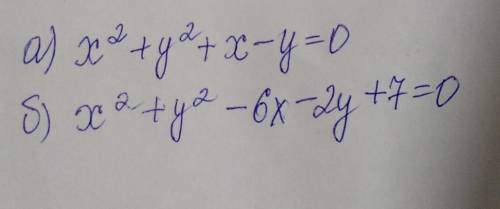 а) x² + y² + x - y = 0
б) x² + y² - 6x - 2y + 7 = 0